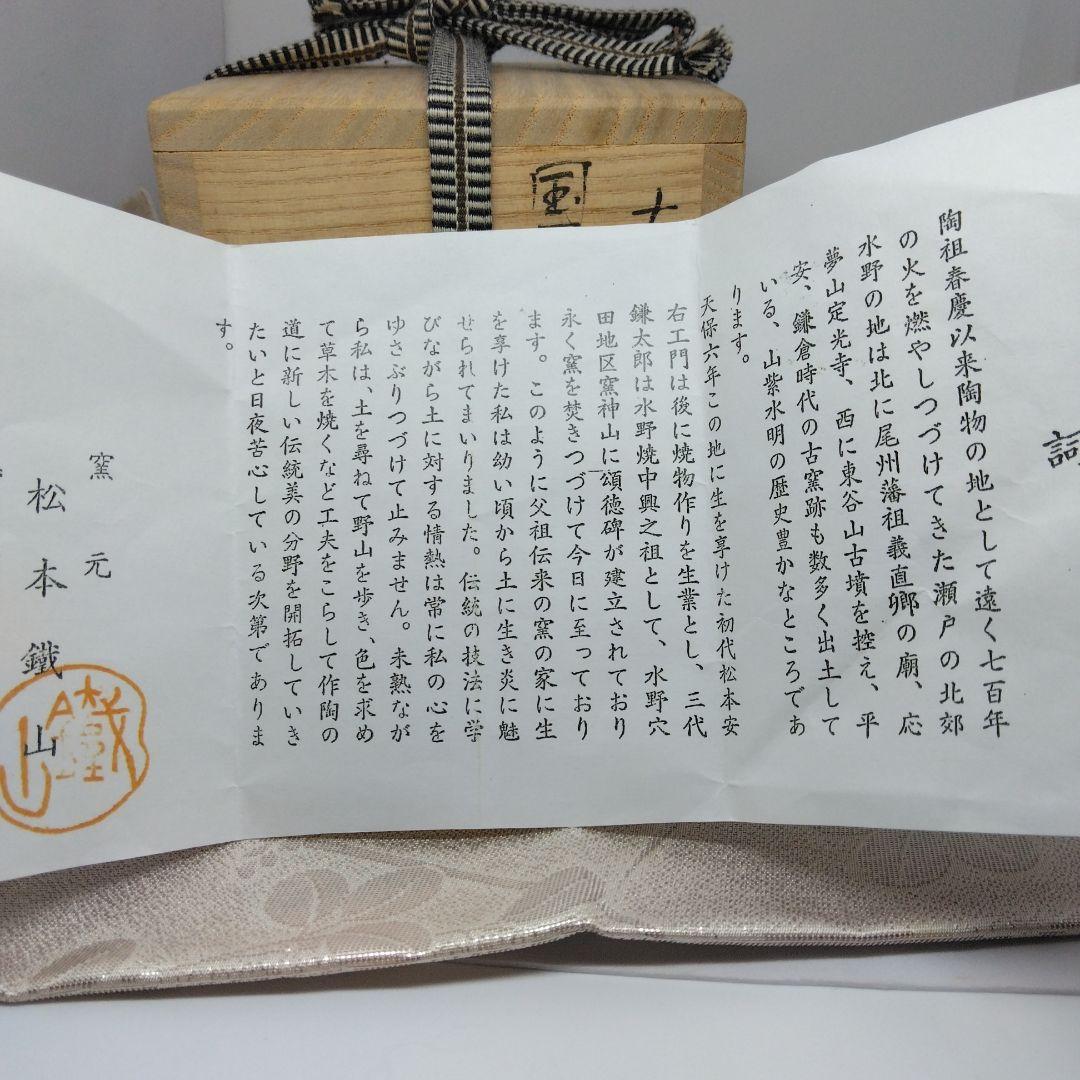 詞
陶祖春慶以来陶物の地として遠く七百年
の火を燃やしつづけてきた瀬戸の北郊
水野の地は北に尾州藩祖義直卿の廟、応
夢山定光寺、西に東谷山古墳を控え、平
安、鎌倉時代の古窯跡も数多く出土して
いる、山紫水明の歴史豊かなところであ
ります。
天保六年この地に生を享けた初代松本安
右エ門は後に焼物作りを生業とし、三代
鎌太郎は水野焼中興之祖として、水野穴
田地区窯神山に頌徳碑が建立されており
永く窯を焚きつづけて今日に至っており
ます。このように父祖伝来の窯の家に生
を享けた私は幼い頃から土に生き炎に魅
せられてまいりました。伝統の技法に学
びながら土に対する情熱は常に私の心を
ゆさぶりつづけて止みません。未熟なが
ら私は、土を尋ねて野山を歩き、色を求め
て草木を焼くなど工夫をこらして作陶の
道に新しい伝統美の分野を開拓していき
たいと日夜苦心している次第でありま
す。
窯元
松本鐵山